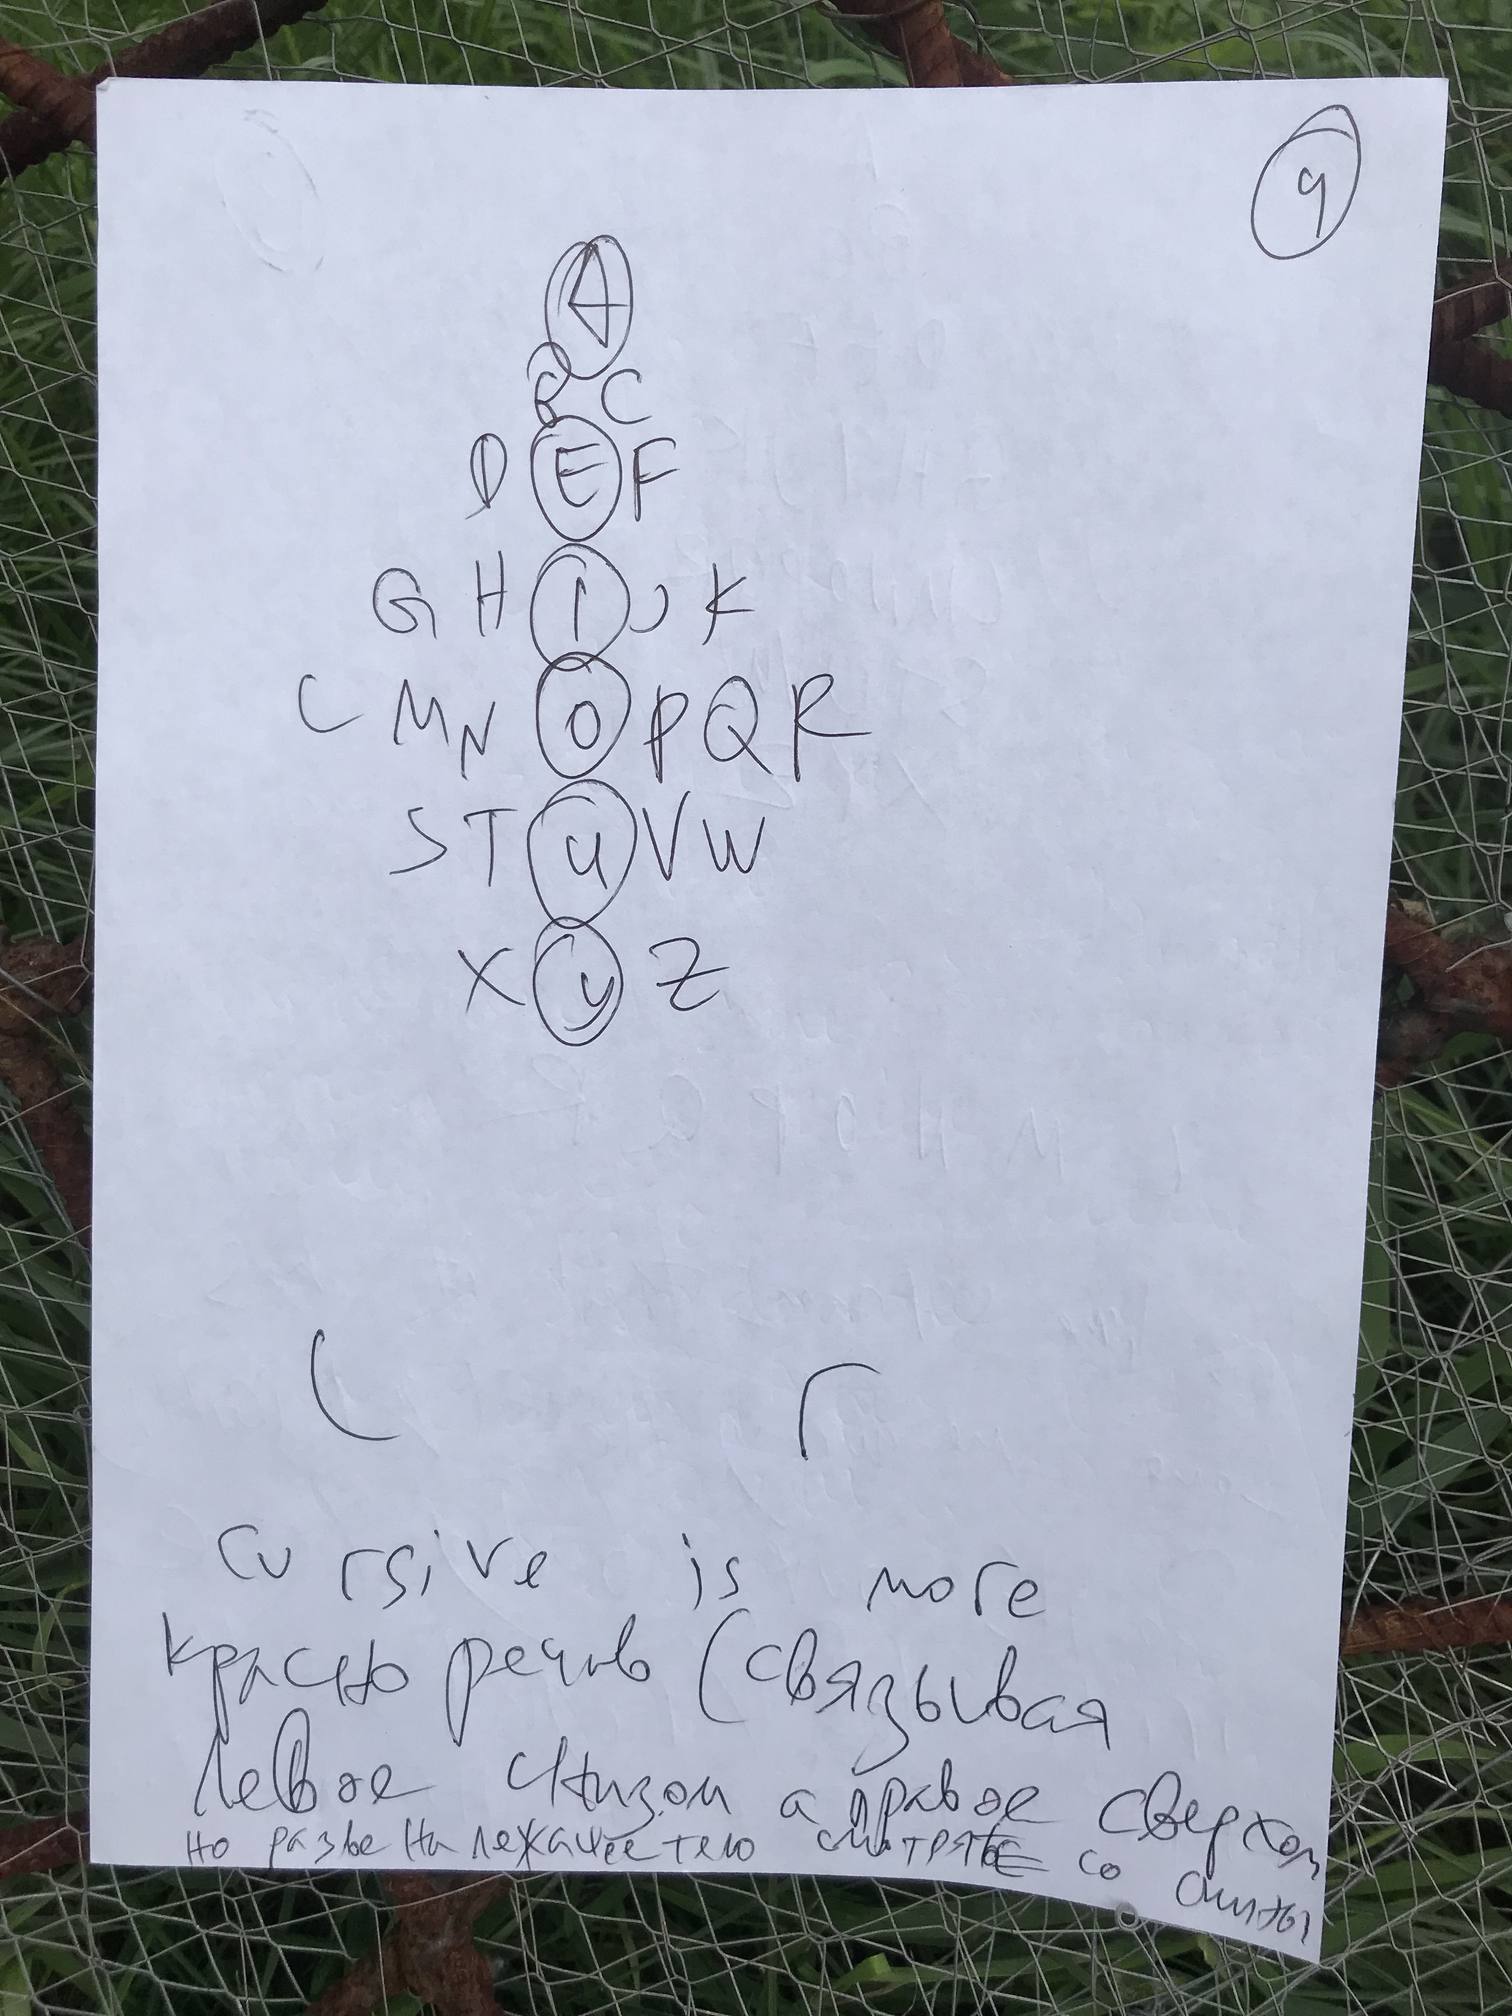 9
A
B C
D E F
G H I J K
L M N O P Q R
S T U V W
X Y Z
L r
cursive is more
красноречив (связывая
левое снизом а правое сверхом
но разве на лежачее тело смотрят со спины